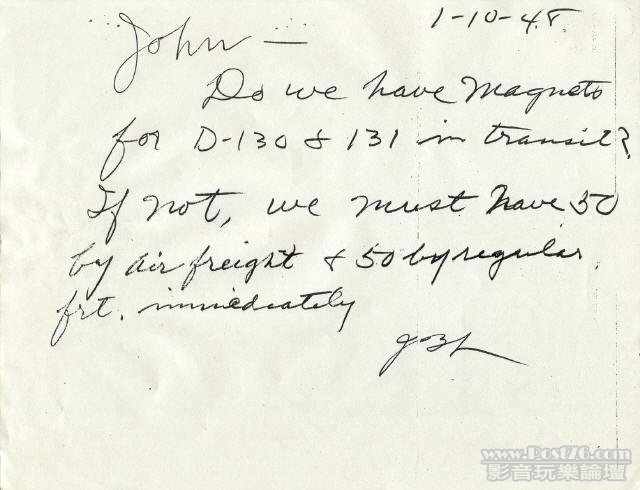 1-10-48
John —
Do we have Magnets
for D-130 & 131 in transit?
If not, we must have 50
by air freight & 50 by regular
frt. immediately
JBL
www.Post76.com
影音玩樂論壇